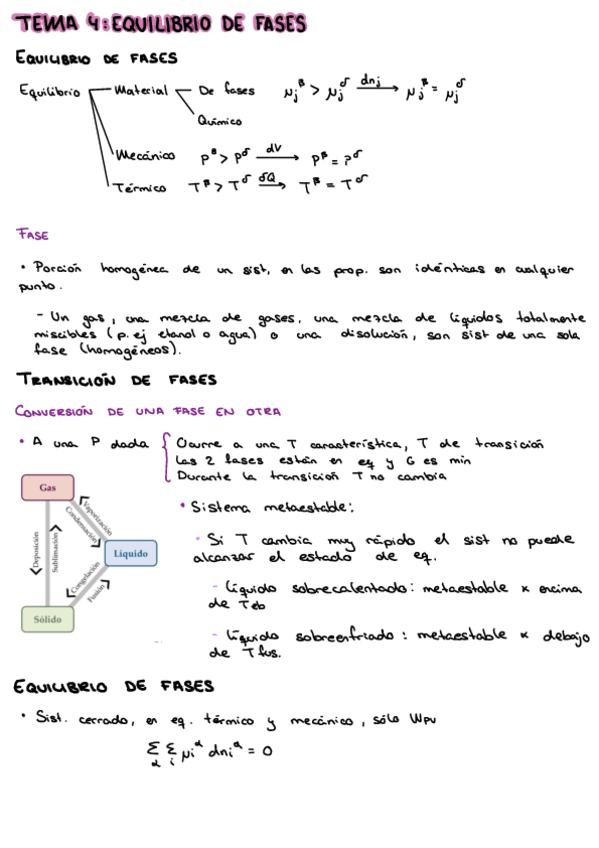 TEMA 4: EQUILIBRIO DE FASES
EQUILIBRIO DE FASES
Equilibrio Material De fases μj^β > μj^δ dnj → μj^β = μj^δ
Químico
Mecánico P^β > P^δ dV → P^β = P^δ
Térmico T^β > T^δ δQ → T^β = T^δ
FASE
• Porción homogénea de un sist, en las prop. son idénticas en cualquier
punto.
- Un gas, una mezcla de gases, una mezcla de líquidos totalmente
miscibles (p. ej etanol o agua) o una disolución, son sist de una sola
fase (homogéneos).
TRANSICIÓN DE FASES
CONVERSIÓN DE UNA FASE EN OTRA
• A una P dada { Ocurre a una T característica, T de transición
Las 2 fases están en eq y G es min
Durante la transición T no cambia
Gas
Vaporización
Condensación
Deposición
Sublimación
Líquido
Congelación
Fusión
Sólido
• Sistema metaestable:
• Si T cambia muy rápido el sist no puede
alcanzar el estado de eq.
- Líquido sobrecalentado: metaestable x encima
de Teb
- Líquido sobreenfriado: metaestable x debajo
de Tfus.
EQUILIBRIO DE FASES
• Sist. cerrado, en eq. térmico y mecánico, sólo Wpv
Σα Σi μi^α dni^α = 0